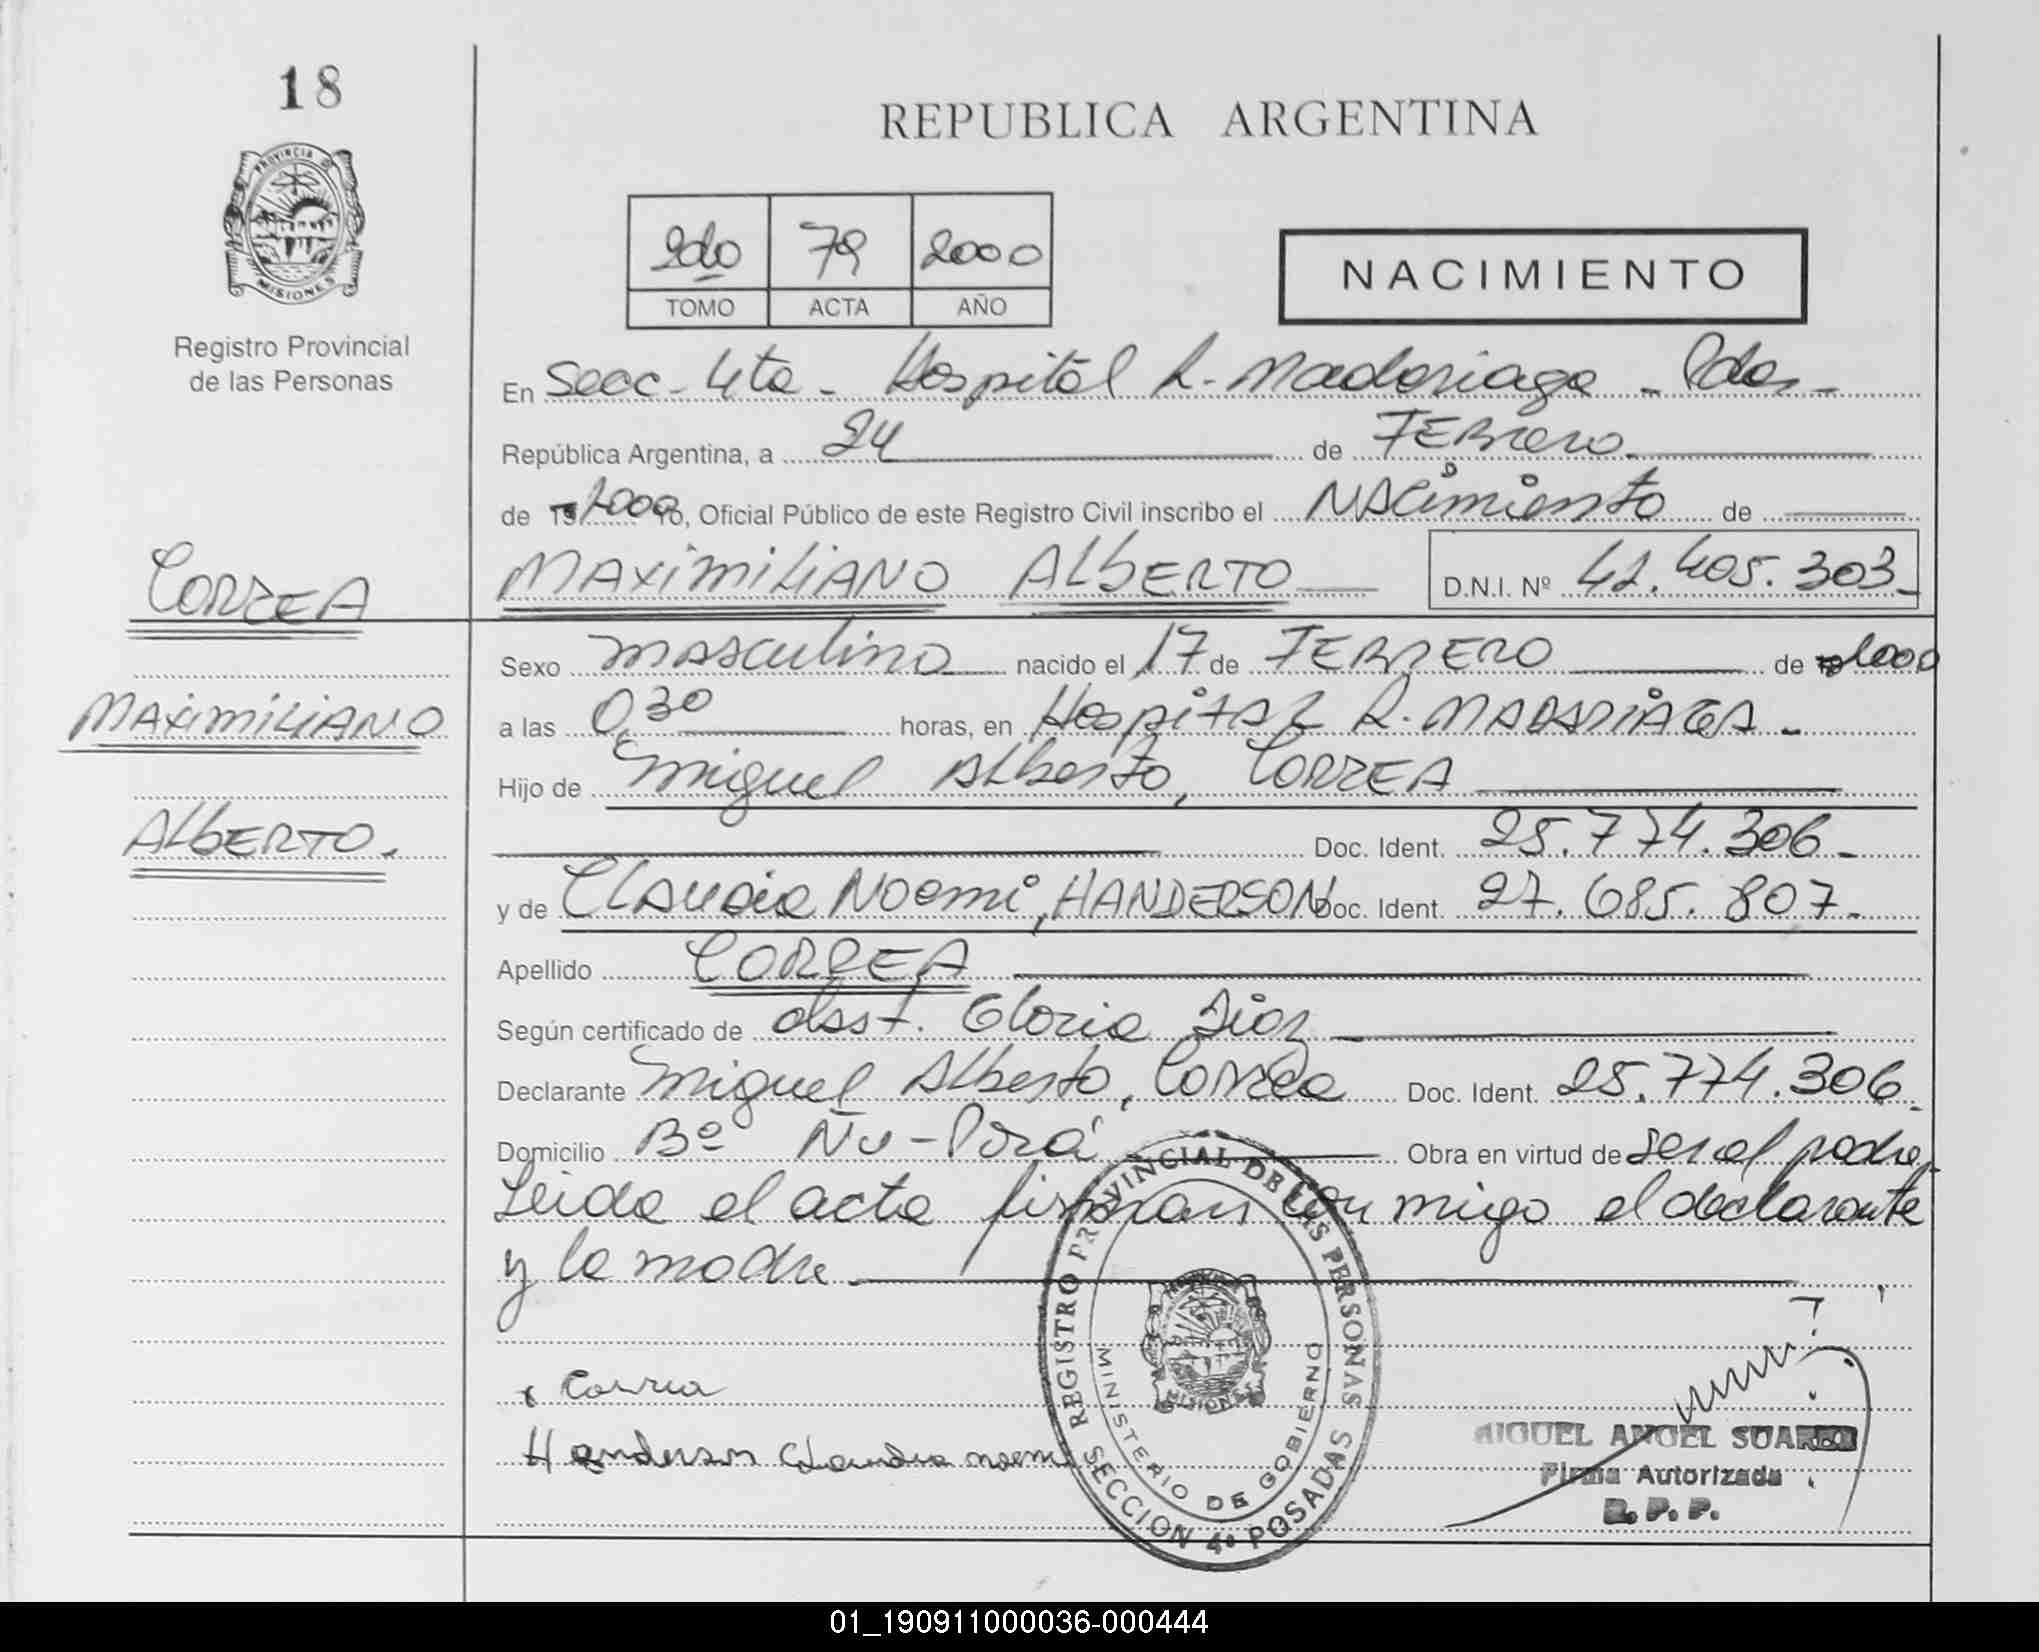 18
REPUBLICA ARGENTINA
PROVINCIA DE
MISIONES
Registro Provincial
de las Personas
2do 79 2000
TOMO ACTA AÑO
NACIMIENTO
En Secc. 4ta - Hospital R. Madariaga - Pdas -
República Argentina, a 24 de FEBrero
de 2000 yo, Oficial Público de este Registro Civil inscribo el NAcimiento de
CORREA
MAXiMiLiANO ALbERTO D.N.I. Nº 42.405.303-
Sexo masculino nacido el 17 de FEBRERO de 2000
MAXimiLiANO
a las 0,30 horas, en HospitAl R. MADARiAGA -
Hijo de Miguel Alberto, CORREA
ALbERTO.
Doc. Ident. 25.774.306-
y de CLAudia Noemi, HANDERSON Doc. Ident. 27.685.807-
Apellido CORREA
Según certificado de obst. Gloria Diaz
Declarante Miguel Alberto, Correa Doc. Ident. 25.774.306-
Domicilio Bº Ñu-Porá Obra en virtud de ser el padre,
Leida el acta firman con migo el declarante
y la madre
x Correa
Handerson Claudia noemi
REGISTRO PROVINCIAL DE LAS PERSONAS
MINISTERIO DE GOBIERNO
MISIONES
SECCION 4ª POSADAS
MIGUEL ANGEL SUAREZ
Firma Autorizada
R. P. P.
01_190911000036-000444